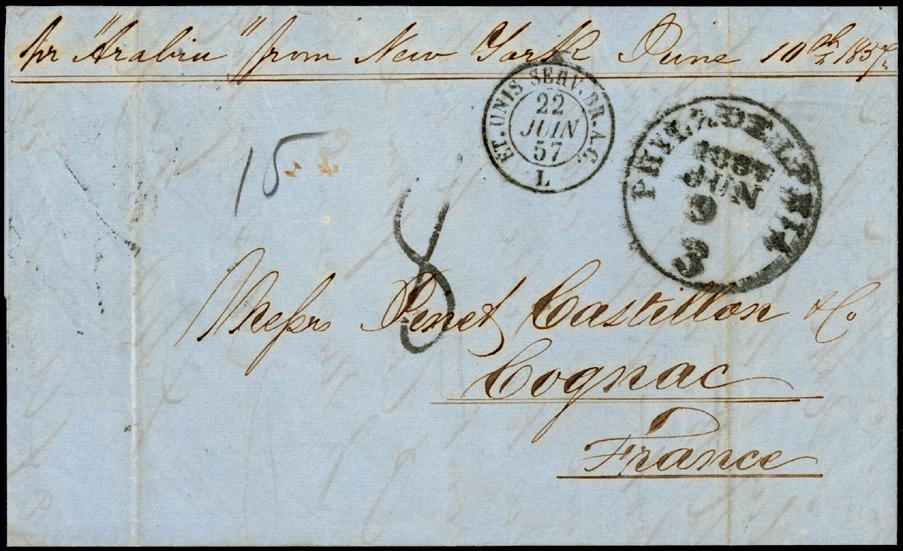 pr "Arabia" from New York June 10th 1857
ET. UNIS SERV. BR. A. C.
22
JUIN
57
L
PHILADELPHIA
1857
JUN
9
3
15
8
Messrs Pinet Castillon & Co.
Cognac
France